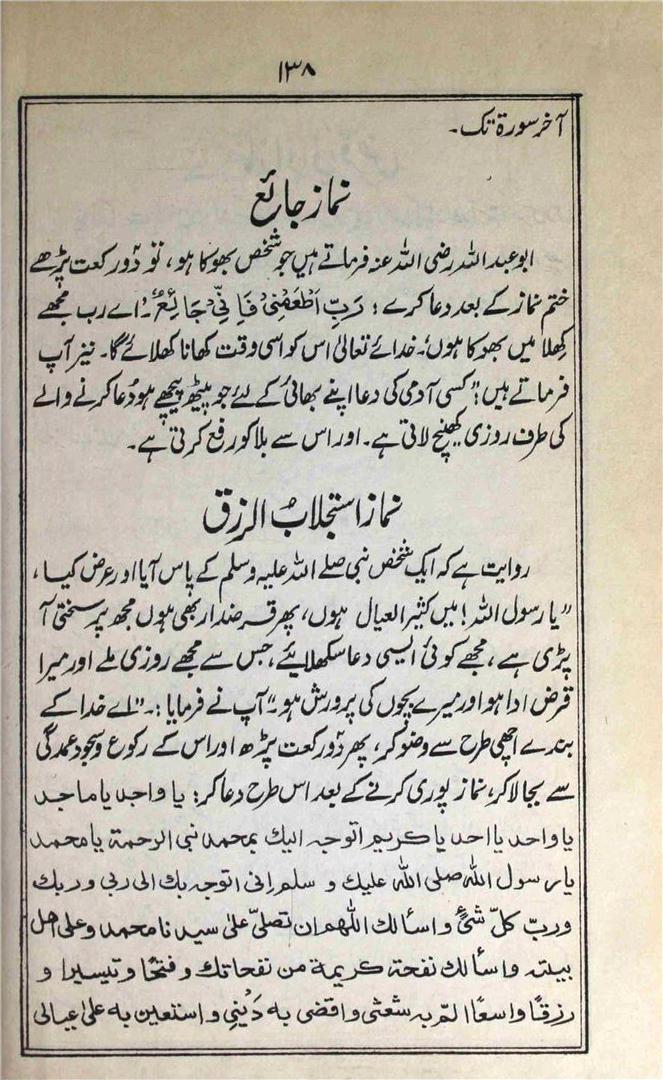 ۱۳۸
آخر سورۃ تک۔
نماز جائع
ابو عبد اللہ رضی اللہ عنہ فرماتے ہیں جو شخص بھوکا ہو، تو دو رکعت پڑھے
ختم نماز کے بعد دعا کرے: رَبِّ اَطْعِمْنِیْ فَاِنِّیْ جَائِعٌ۔ "اے رب مجھے
کھلا میں بھوکا ہوں"۔ خدائے تعالیٰ اس کو اسی وقت کھانا کھلائے گا۔ نیز آپ
فرماتے ہیں: "کسی آدمی کی دعا اپنے بھائی کے لئے جو پیٹھ پیچھے ہو دُعا کرنے والے
کی طرف روزی کھینچ لاتی ہے۔ اور اس سے بلا کو رفع کرتی ہے۔
نماز استجلابُ الرزق
روایت ہے کہ ایک شخص نبی صلے اللہ علیہ وسلم کے پاس آیا اور عرض کیا،
"یا رسول اللہ! میں کثیر العیال ہوں، پھر قرضدار بھی ہوں مجھ پر سختی آ
پڑی ہے، مجھے کوئی ایسی دعا سکھلائیے، جس سے مجھے روزی ملے اور میرا
قرض ادا ہو اور میرے بچوں کی پرورش ہو۔" آپ نے فرمایا:۔ "اے خدا کے
بندے اچھی طرح سے وضو کر، پھر دو رکعت پڑھ اور اس کے رکوع و سجود عمدگی
سے بجا لا کر، نماز پوری کرنے کے بعد اس طرح دعا کر: یا واجد یا ماجد
یا واحد یا احد یا کریم اتوجہ الیک بمحمد نبی الرحمة یا محمد
یا رسول اللہ صلی اللہ علیك و سلم اِنی اتوجہ بك الی ربی و ربك
و ربّ کلّ شیٔ و اسألك اللهم ان تصلیّ علیٰ سیدنا محمد و علی اهل
بیتہ و اسألك نفحة کریمة من نفحاتك و فتحًا و تیسیرا و
رزقًا واسعًا المّ بہ شعثی و اقضی بہ دَیْنِی و استعین بہ علیٰ عیالی